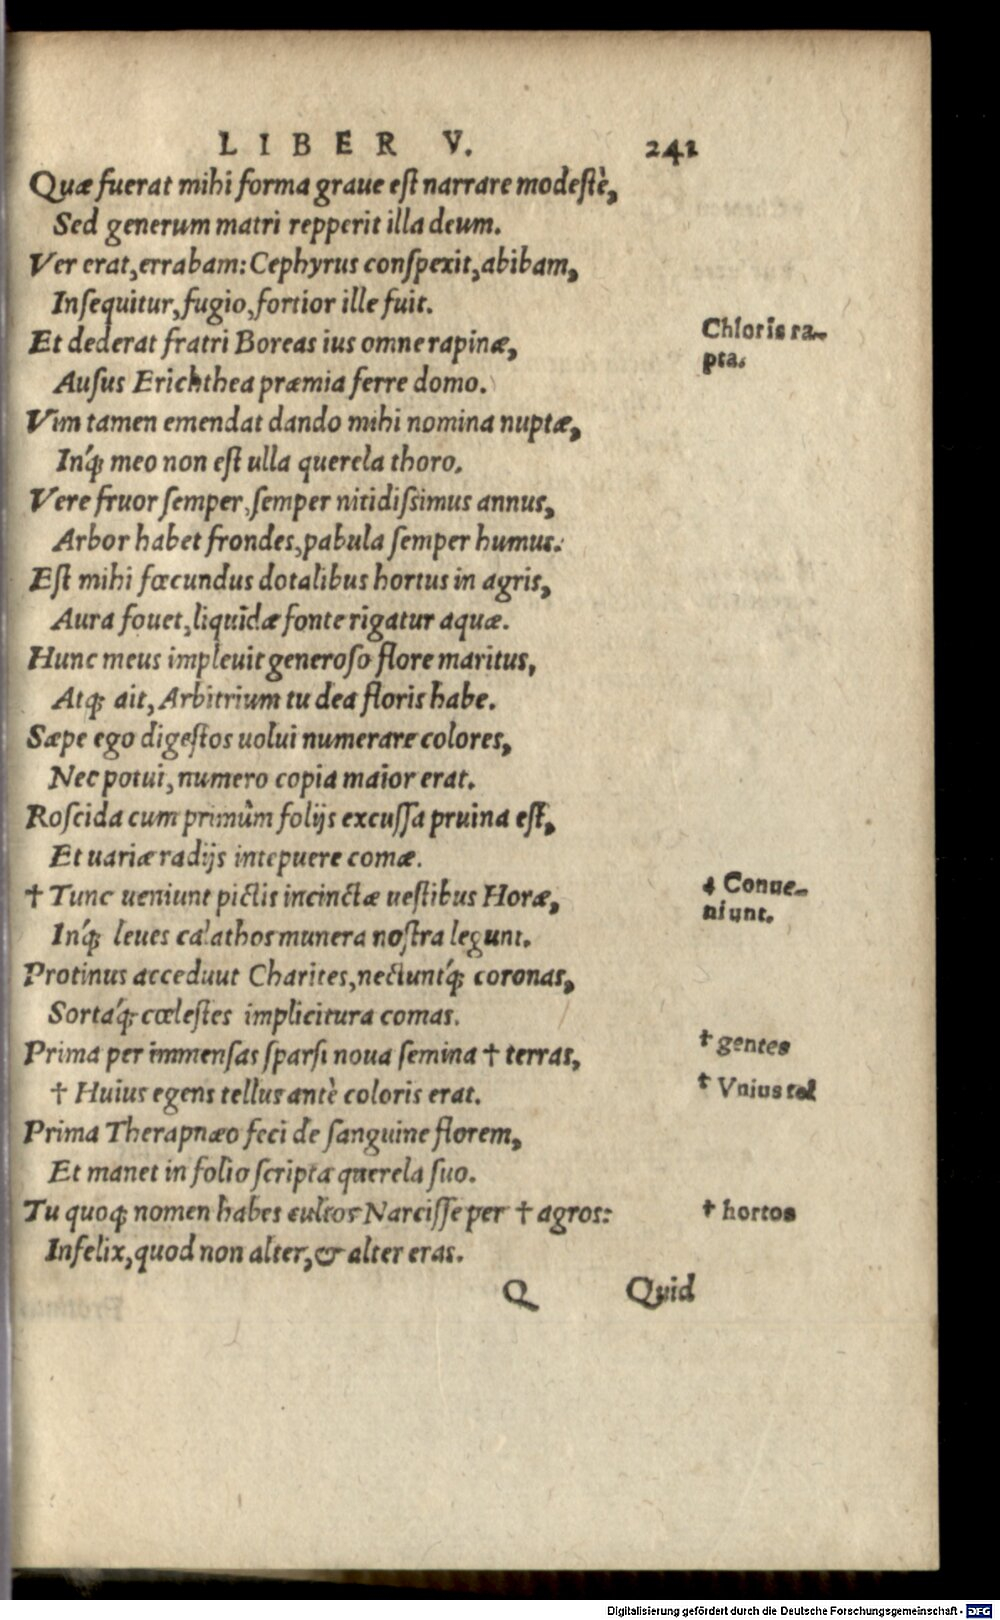 LIBER V. 241
Quæ fuerat mihi forma graue est narrare modestè,
Sed generum matri repperit illa deum.
Ver erat, errabam: Cephyrus conspexit, abibam,
Insequitur, fugio, fortior ille fuit.
Et dederat fratri Boreas ius omne rapinæ,
Chloris ra-
pta.
Ausus Erichthea præmia ferre domo.
Vim tamen emendat dando mihi nomina nuptæ,
Inq́; meo non est ulla querela thoro.
Vere fruor semper, semper nitidissimus annus,
Arbor habet frondes, pabula semper humus.
Est mihi fœcundus dotalibus hortus in agris,
Aura fouet, liquidæ fonte rigatur aquæ.
Hunc meus impleuit generoso flore maritus,
Atq; ait, Arbitrium tu dea floris habe.
Sæpe ego digestos uolui numerare colores,
Nec potui, numero copia maior erat.
Roscida cum primùm folijs excussa pruina est,
Et uariæ radijs intepuere comæ.
† Tunc ueniunt pictis incinctæ uestibus Horæ,
† Conue-
niunt.
Inq́; leues calathos munera nostra legunt.
Protinus acceduut Charites, nectuntq́; coronas,
Sertaq́; cœlestes implicitura comas.
Prima per immensas sparsi noua semina † terras,
† gentes
† Huius egens tellus antè coloris erat.
† Vnius tel
Prima Therapnæo feci de sanguine florem,
Et manet in folio scripta querela suo.
Tu quoq; nomen habes cultos Narcisse per † agros:
† hortos
Infelix, quod non alter, & alter eras.
Q Quid
Digitalisierung gefördert durch die Deutsche Forschungsgemeinschaft - DFG